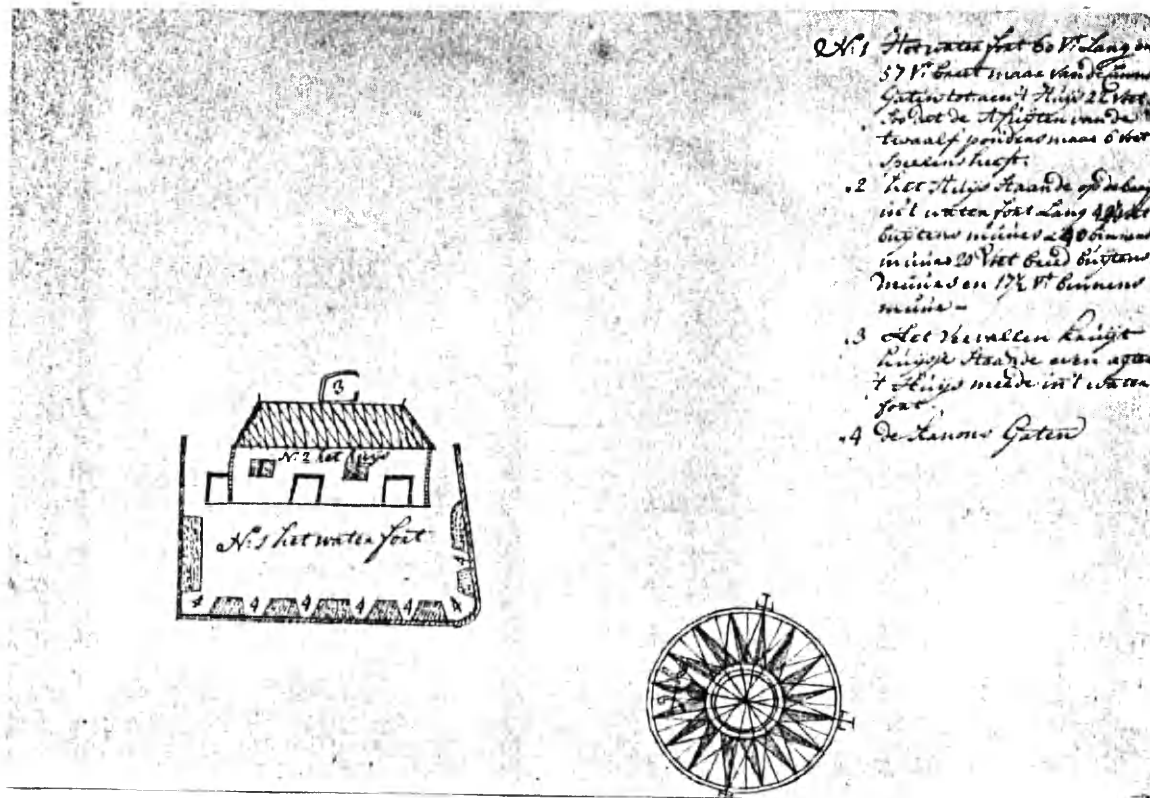 No 1 Het water fort 60 Vt Lang en
57 Vt breet maar van de
Gaten tot aen 't Huijs 22 Voet
So dat de van de
twaalf ponders maar 6 Voet
heeft.
.2 het Huijs Staande op de
in 't water fort Lang Voet
buijtens muures 40 binnens
muures 20 Voet breed buijtens
muures en 17½ Vt binnens
muure -
.3 Het Vervallen kruijt
huijsje Staande even agter
't Huijs meede in 't water
fort
.4 de Kanons Gaten
3
No 2 het huijs
No 1 het water fort
4
4 4 4 4 4 4 4